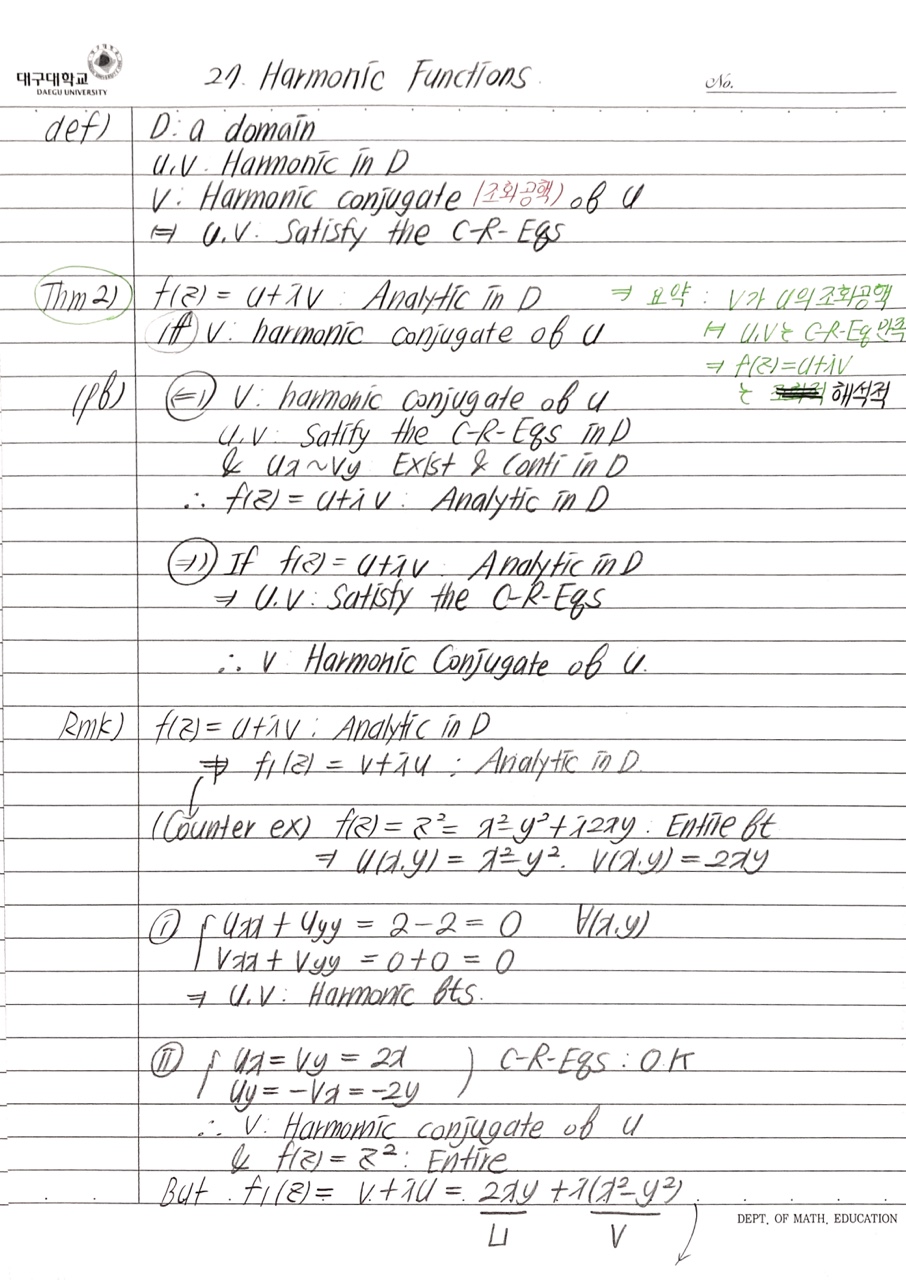 대구대학교
DAEGU UNIVERSITY
27. Harmonic Functions.
No.
def) D: a domain
u, v: Harmonic in D
v: Harmonic conjugate (조화공액) of u
⇔ u, v: Satisfy the C-R-Eqs
Thm 2) f(z) = u+iv : Analytic in D ⇒ 요약 : v가 u의 조화공액
iff v: harmonic conjugate of u ⇔ u, v는 C-R-Eq 만족
⇒ f(z)=u+iv
(pf) ⇐) v: harmonic conjugate of u 는 해석적
u, v: Satify the C-R-Eqs in D
& ux ~ vy Exist & Conti in D
∴ f(z) = u+iv : Analytic in D
⇒) If f(z) = u+iv : Analytic in D
⇒ u, v : Satisfy the C-R-Eqs
∴ v Harmonic Conjugate of u.
Rmk) f(z) = u+iv : Analytic in D
⇏ f₁(z) = v+iu : Analytic in D.
(Counter ex) f(z) = z² = x²-y²+i2xy : Entire ft
⇒ u(x,y) = x²-y². v(x,y) = 2xy
ⓘ { uxx + uyy = 2-2 = 0 ∀(x,y)
vxx + vyy = 0+0 = 0
⇒ u, v : Harmonic fts.
ⓘⓘ { ux = vy = 2x ) C-R-Eqs : O.K
uy = -vx = -2y
∴ v: Harmomic conjugate of u
& f(z) = z² : Entire
But f₁(z) = v+iu = 2xy + i(x²-y²)
DEPT. OF MATH. EDUCATION
U V